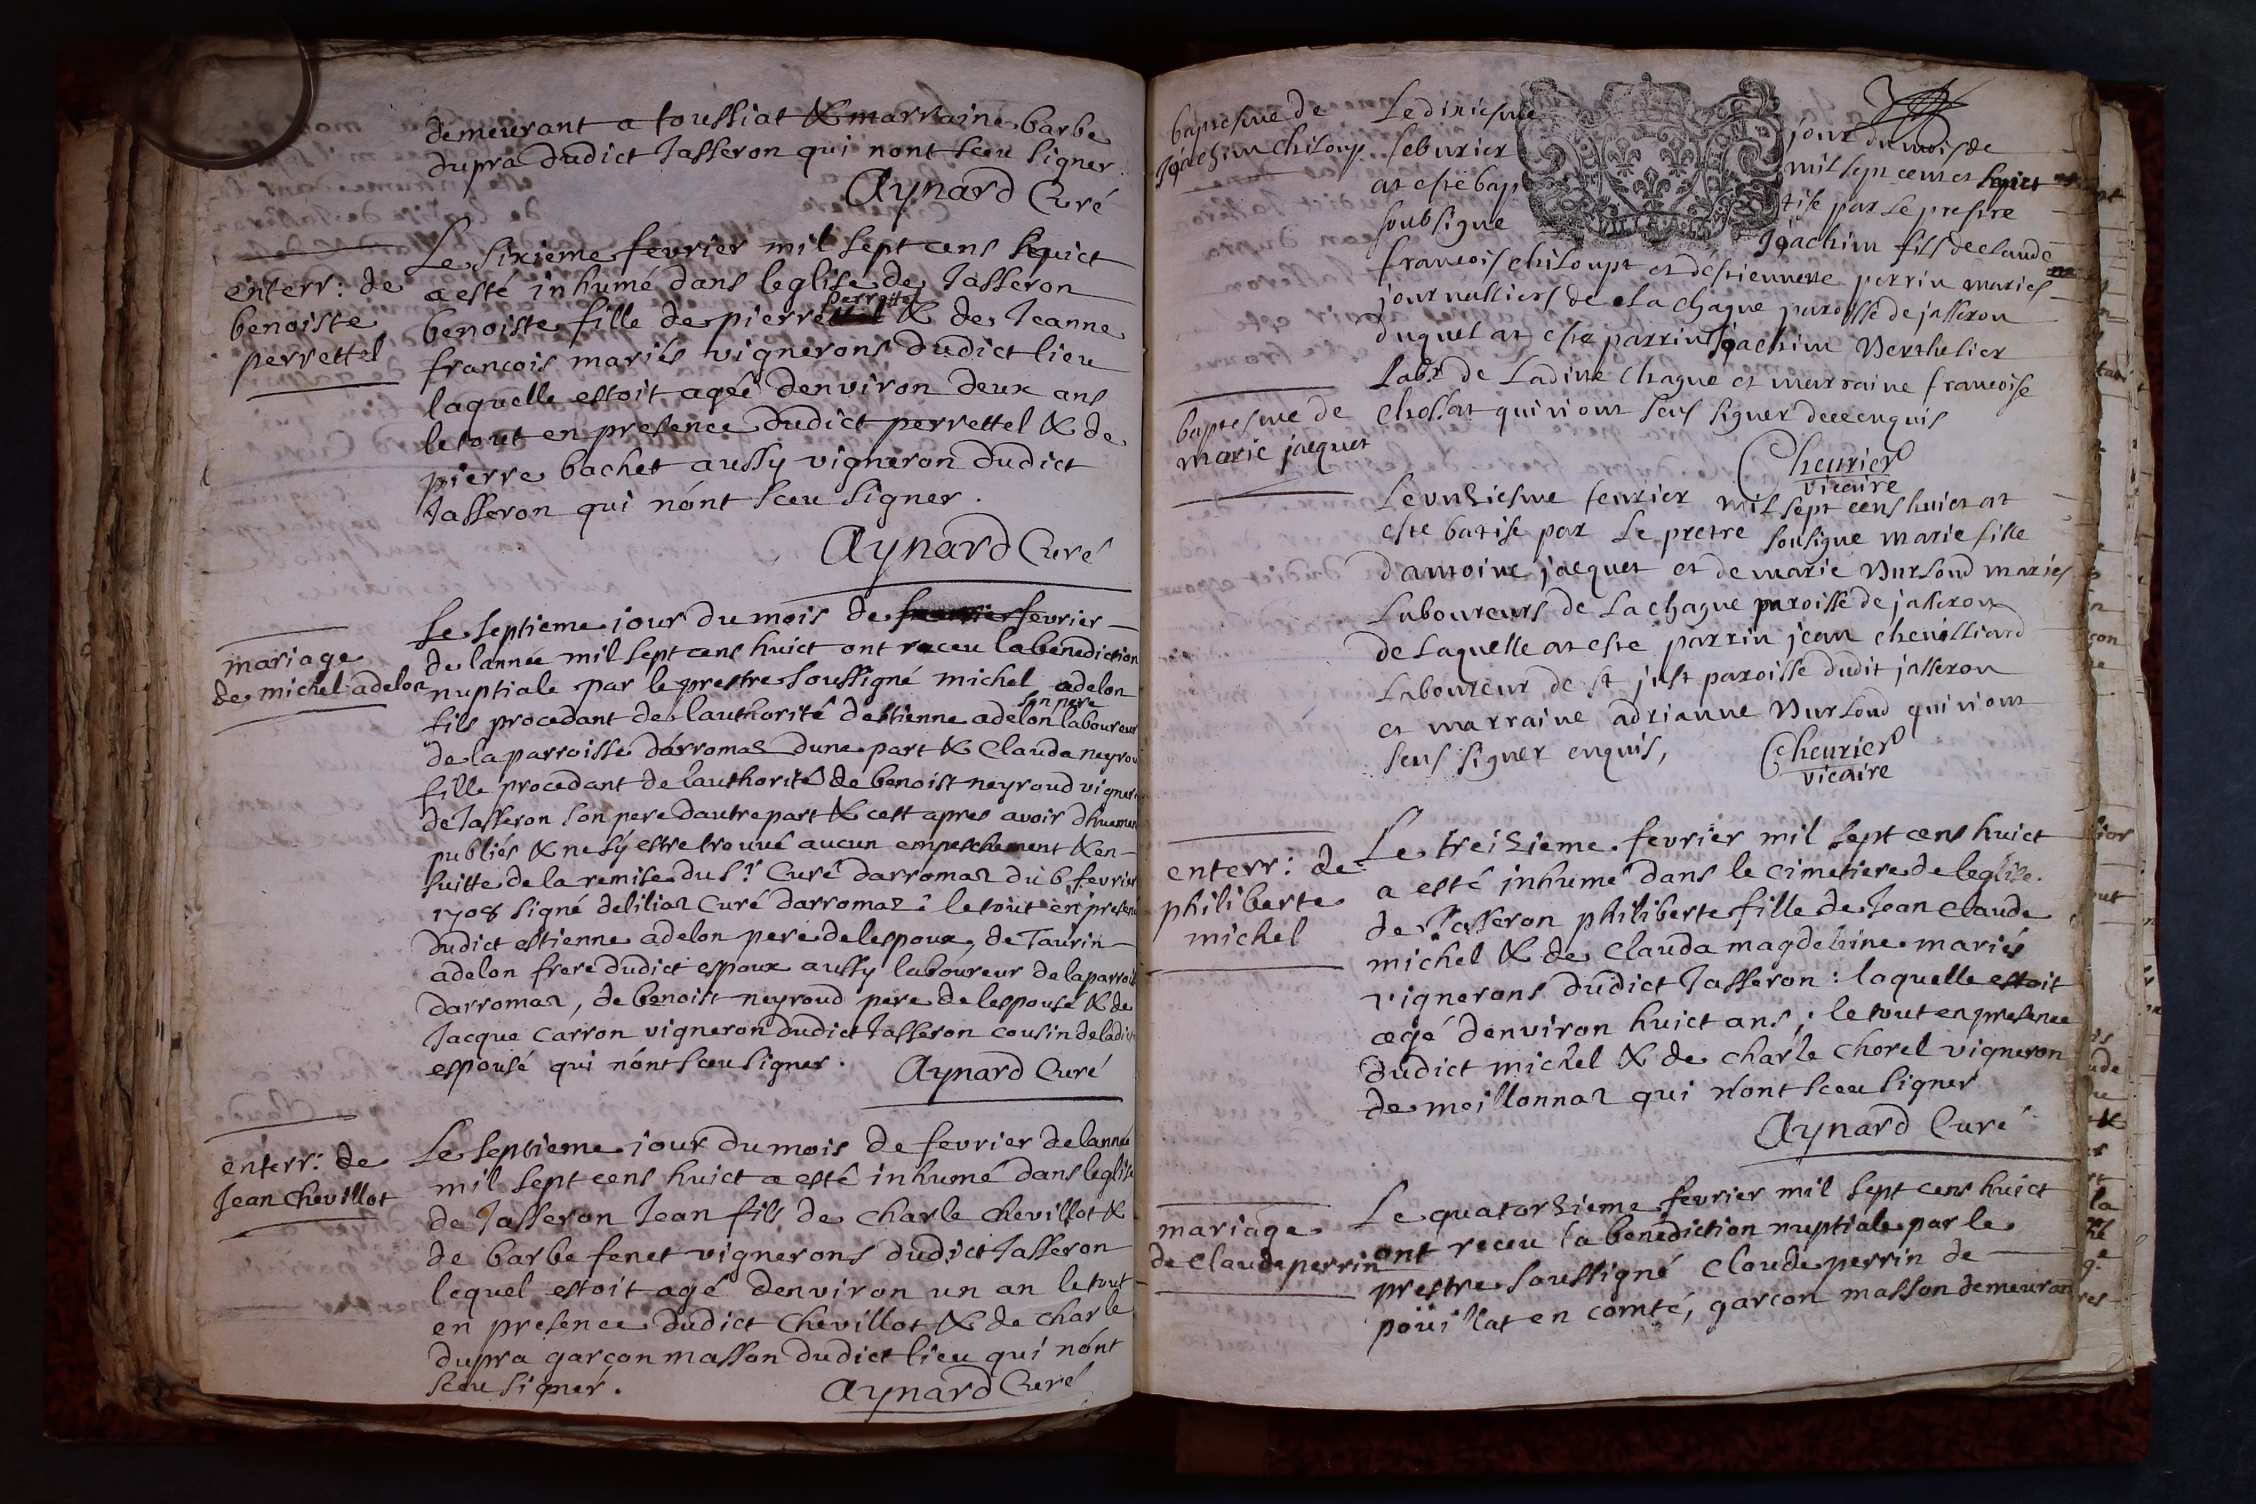 demeurant a toussiat & marraine barbe
dupra dudict Jasseron qui nont sceu signer
Aynard Curé
enterr: de
benoiste
perrettel
Le sixieme fevrier mil sept cens huict
a esté inhumé dans leglise de Jasseron
benoiste fille de pierre perrettel & de Jeanne
francois mariés vignerons dudict lieu
laquelle estoit agéé denviron deux ans
le tout en presence dudict perrettel & de
pierre bachet aussy vigneron dudict
Jasseron qui nónt sceu signer.
Aynard Curé
mariage
de michel adelon
Le septieme jour du mois de fevrier
de lannée mil sept cens huict ont receu la benediction
nuptiale par le prestre soussigné michel adelon
fils procedant de lauthorité destienne adelon son pere laboureur
de la parroisse darromas dune part & Clauda neyrou
fille procedant de lauthorité de benoist neyroud vigner
de Jasseron son pere dautre part & cest apres avoir dhuemen
publiés & ne sy estre trouvé aucun empeschement & en
suitte de la remise du sr. Curé darromas du 6 fevrier
1708 signé delilias Curé darromas: le tout en presen
dudict estienne adelon pere de lespoux, de Taurin
adelon frere dudict espoux aussy laboureur de la parrois
darromas, de benoist neyroud pere de lespousé & de
Jacque Carron vigneron dudict Jasseron cousin de ladi
espousé qui nónt sceu signer.
Aynard Curé
enterr: de
Jean Chevillot
Le septieme jour du mois de fevrier de lannée
mil sept cens huict a esté inhumé dans leglise
de Jasseron Jean fils de charle chevillot &
de barbe fenet vignerons dudict Jasseron
lequel estoit agé denviron un an le tout
en presence dudict Chevillot & de charle
dupra garcon masson dudict lieu qui nónt
sceu signér.
Aynard Curé
baptesme de
Joachim chiloup
Le dixiesme jour du mois de
feburier mil sept cent et huict
at esté baptisé par le prestre
soubsigne Joachim fils de claude
francois chiloupt et destiennette perrin mariés
journalliers de la chague paroisse de jasseron
duquel at esté parrin Joachim Berthelier
labr de ladite chague et marraine francoise
chossat qui n'ont sceus signer de ce enquis
Cheurier
vicaire
baptesme de
marie jacquet
Le unziesme feurier mil sept cens huict at
esté batisé par le pretre sousigné marie fille
d'antoine jacquet et de marie Burlond mariés
Laboureurs de la chague paroisse de jasseron
de laquelle at esté parrin jean chevilliard
Laboureur de st just paroisse dudit jasseron
et marraine adrianne Burlond qui n'ont
sceus signer enquis,
Cheurier
vicaire
enterr: de
philiberte
michel
Le treizieme fevrier mil sept cens huict
a esté inhumé dans le cimetiere de leglise
de Jasseron philiberte fille de Jean Claude
michel & de Clauda magdeleine mariés
vignerons dudict Jasseron: laquelle estoit
agé denviron huict ans,: le tout en presence
dudict michel & de charle Chorel vigneron
de meillonnas qui n'ont sceu signer
Aynard Curé
mariage
de Claude perrin
Le quatorzieme fevrier mil sept cens huict
ont receu la benediction nuptiale par le
prestre soussigné Claude perrin de
pouillat en comté, garcon masson demeuran